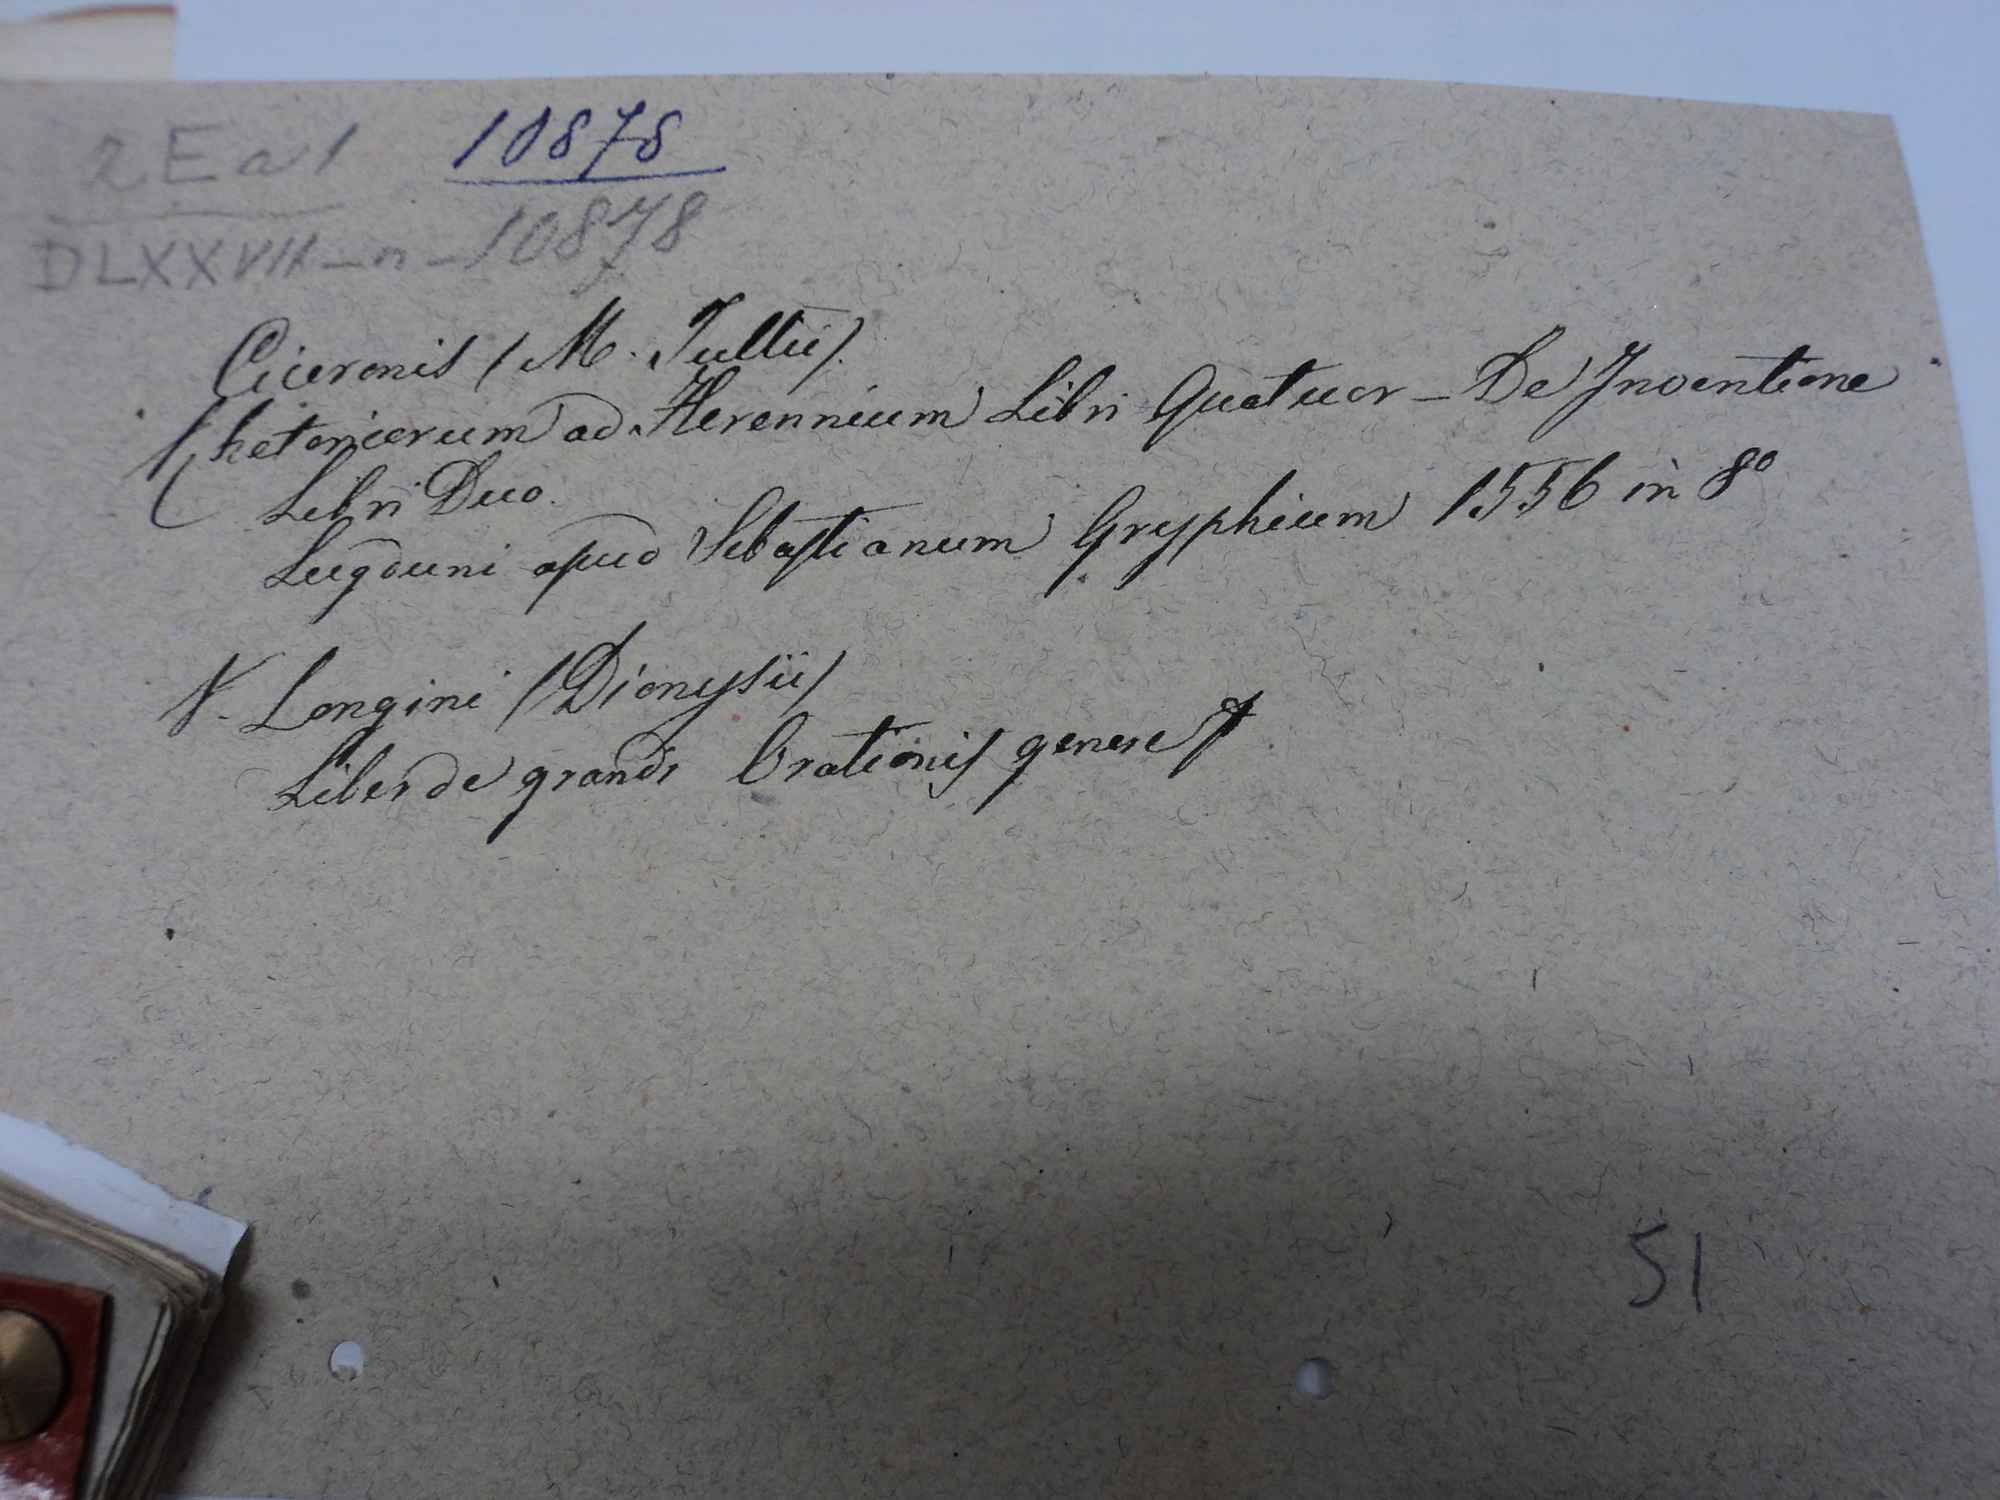 2 E a 1 10878
DLXXVII - n - 10878
Ciceronis (M. Tullii).
Rhetoricorum ad Herennium Libri Quatuor - De Inventione
Libri Duo.
Lugduni apud Sebastianum Gryphium 1556 in 8º
V. Longini (Dionysii)
Liber de grandi Orationis genere
51